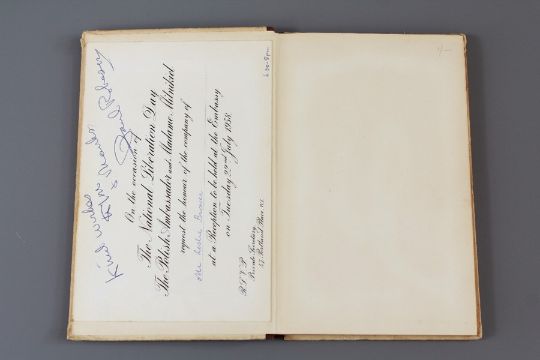 Kind wishes
& thanks
Paul Robeson
On the occasion of
The National Liberation Day
The Polish Ambassador and Madame Milnikiel
request the honour of the company of
Mr. Leslie
at a Reception to be held at the Embassy
on Tuesday 22nd July 1958
6.30-8 pm
R.S.V.P.
Private Secretary
47, Portland Place, W.1.